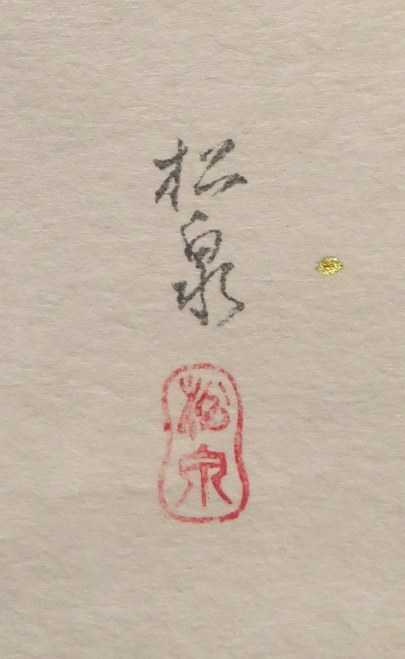 松泉
松泉